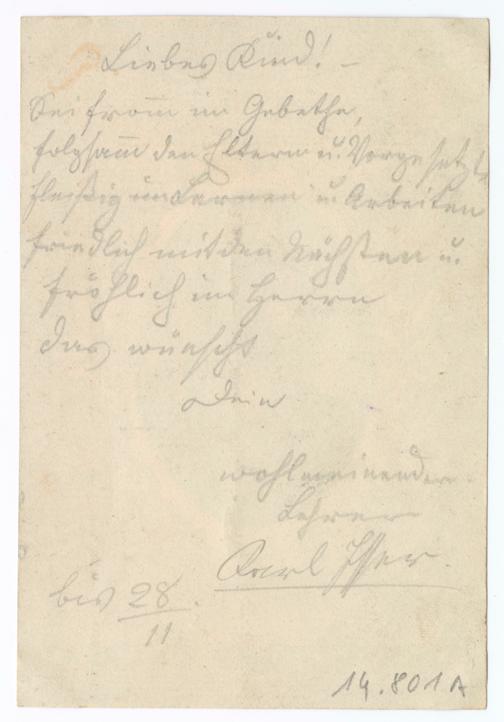 Liebes Kind! –
Sei from̄ im Gebethe,
folgsam̄ den Eltern u. Vorgesetzt
fleißig im Lernen u. Arbeiten
friedlich mit den Nächsten u.
fröhlich im Herrn
das wünscht
Dein
wohlmeinender
Lehrer
Karl
bis 28/11.
14.801A